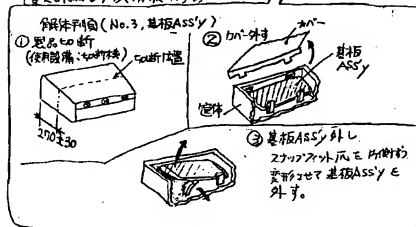 解体手順 (No.3, 基板ASS'y)
① 製品切断
(使用設備:切断機)
切断位置
270±30
② カバー外す
カバー
基板
ASS'y
筐体
③ 基板ASS'y 外し
スナップフィット爪を
変形させて 基板ASS'y を
外す。